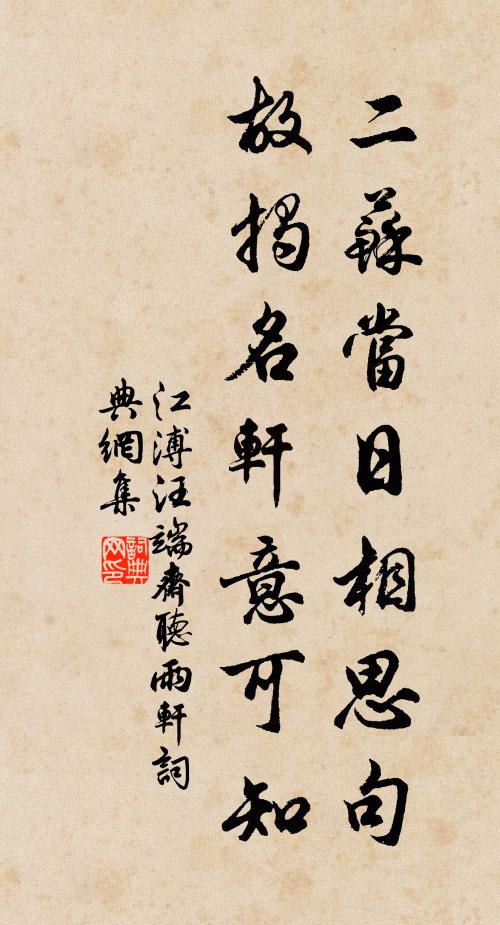 二蘇當日相思句
故揭名軒意可知
江溥汪端齋聽雨軒詞
典網集
詞典網印